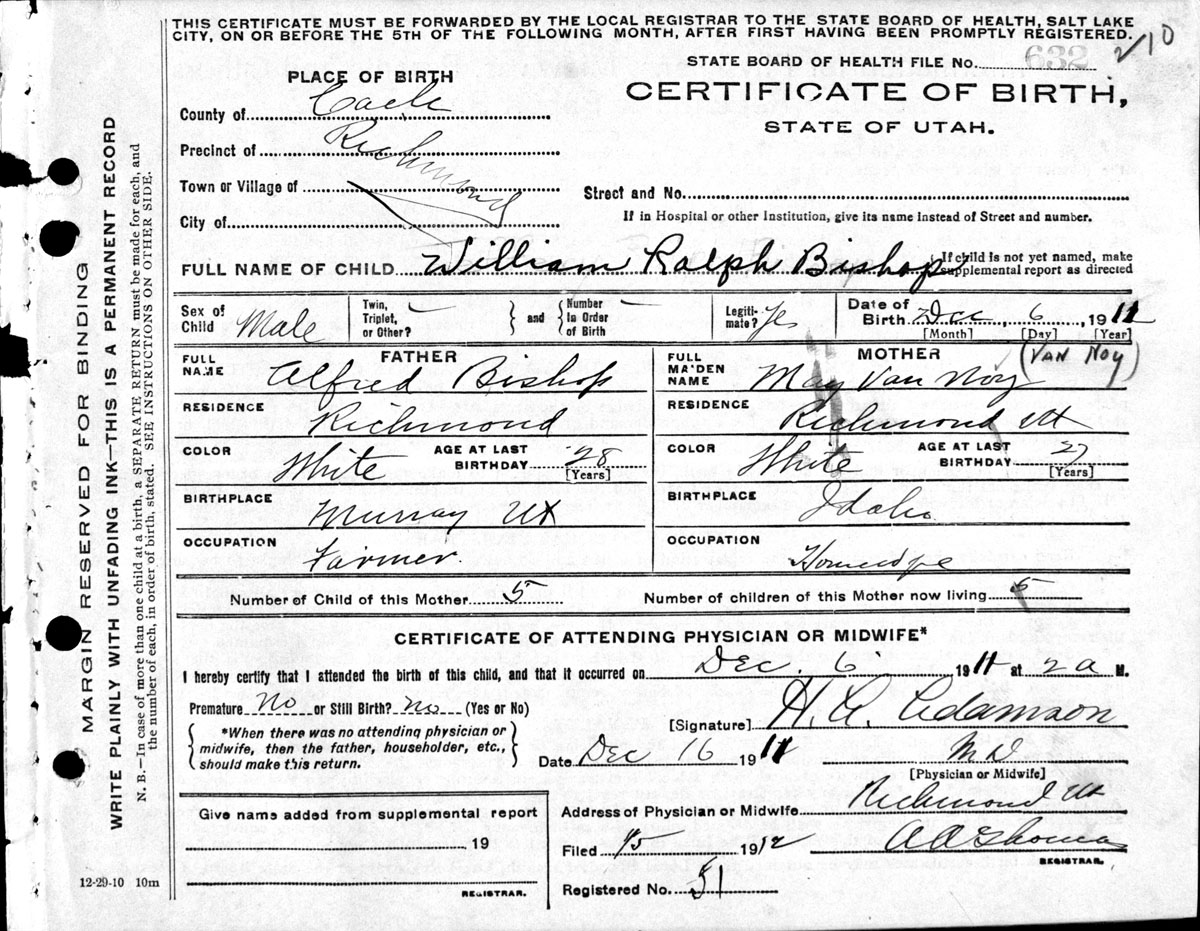 THIS CERTIFICATE MUST BE FORWARDED BY THE LOCAL REGISTRAR TO THE STATE BOARD OF HEALTH, SALT LAKE
CITY, ON OR BEFORE THE 5TH OF THE FOLLOWING MONTH, AFTER FIRST HAVING BEEN PROMPTLY REGISTERED.
2/10
STATE BOARD OF HEALTH FILE No. 632
PLACE OF BIRTH
CERTIFICATE OF BIRTH,
STATE OF UTAH.
County of Cache
Precinct of Richmond
Town or Village of
Street and No.
City of
If in Hospital or other Institution, give its name instead of Street and number.
FULL NAME OF CHILD William Ralph Bishop
If child is not yet named, make
supplemental report as directed
Sex of Child Male
Twin, Triplet, or Other?
and
Number in Order of Birth
Legiti-mate? Yes
Date of Birth Dec 6, 1911
[Month] [Day] [Year]
FATHER
MOTHER (VAN NOY)
FULL NAME Alfred Bishop
FULL MAIDEN NAME May Van Noy
RESIDENCE Richmond
RESIDENCE Richmond Ut
COLOR White AGE AT LAST BIRTHDAY 28 [Years]
COLOR White AGE AT LAST BIRTHDAY 27 [Years]
BIRTHPLACE Murray Ut
BIRTHPLACE Idaho
OCCUPATION Farmer
OCCUPATION Housewife
Number of Child of this Mother 5
Number of children of this Mother now living 5
CERTIFICATE OF ATTENDING PHYSICIAN OR MIDWIFE*
I hereby certify that I attended the birth of this child, and that it occurred on Dec. 6 1911 at 2 a M.
Premature No or Still Birth? no (Yes or No)
[Signature] Adamson
*When there was no attending physician or
midwife, then the father, householder, etc.,
should make this return.
Date Dec 16 1911
M D
[Physician or Midwife]
Address of Physician or Midwife Richmond Ut
Give name added from supplemental report
19
REGISTRAR.
Filed 1/5 1912
Thomas
REGISTRAR.
Registered No. 51
12-29-10 10m
MARGIN RESERVED FOR BINDING
WRITE PLAINLY WITH UNFADING INK—THIS IS A PERMANENT RECORD
N. B.—In case of more than one child at a birth, a SEPARATE RETURN must be made for each, and
the number of each, in order of birth, stated. SEE INSTRUCTIONS ON OTHER SIDE.